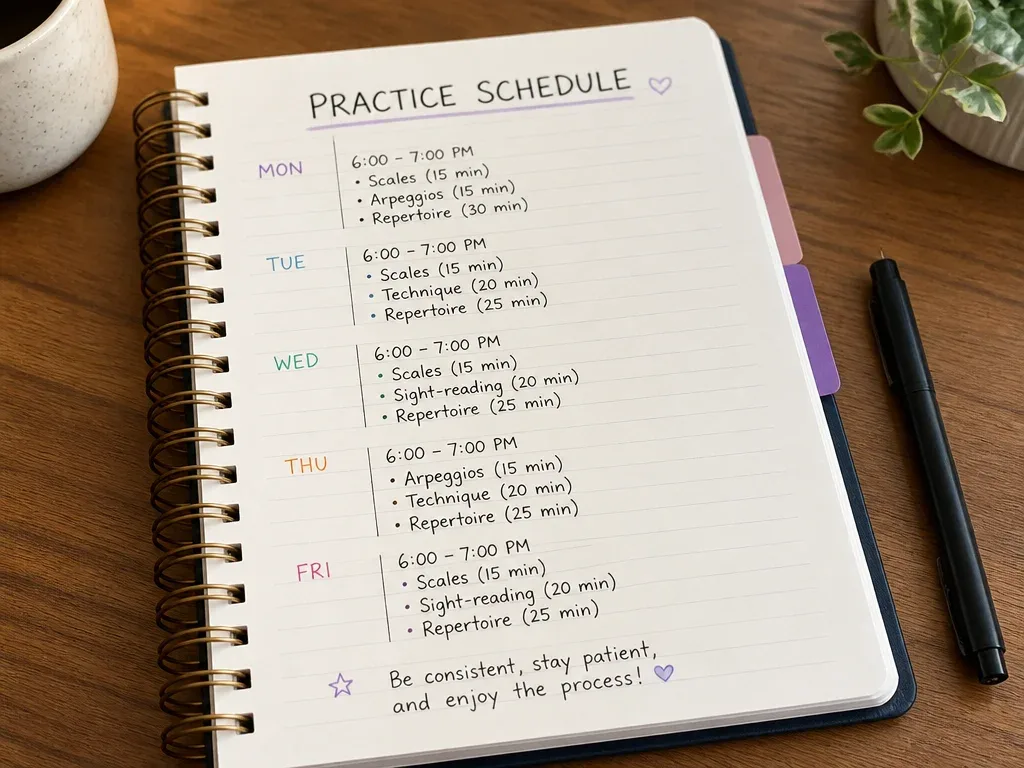 PRACTICE SCHEDULE
MON
6:00 – 7:00 PM
• Scales (15 min)
• Arpeggios (15 min)
• Repertoire (30 min)
TUE
6:00 – 7:00 PM
• Scales (15 min)
• Technique (20 min)
• Repertoire (25 min)
WED
6:00 – 7:00 PM
• Scales (15 min)
• Sight-reading (20 min)
• Repertoire (25 min)
THU
6:00 – 7:00 PM
• Arpeggios (15 min)
• Technique (20 min)
• Repertoire (25 min)
FRI
6:00 – 7:00 PM
• Scales (15 min)
• Sight-reading (20 min)
• Repertoire (25 min)
Be consistent, stay patient,
and enjoy the process!